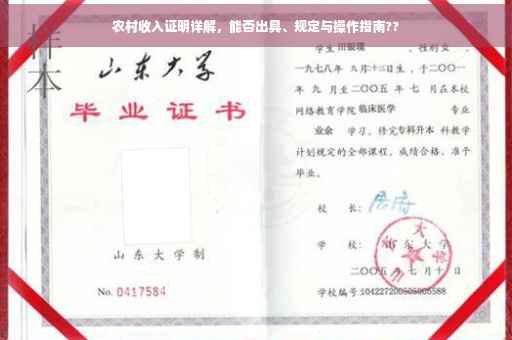 农村收入证明详解，能否出具、规定与操作指南??
样本
山东大学
毕业证书
山东大学制
No. 0417584
学生
性别女，
一九七八年 九月十三日生，于二〇〇一
年 九 月至二〇〇五 年 七 月在本校
网络教育学院临床医学 专业
业余 学习，修完专科升本 科教学
计划规定的全部课程，成绩合格，准予
毕业。
校 长：
学 校：山东大学
二〇〇五年七月十日
学校编号: